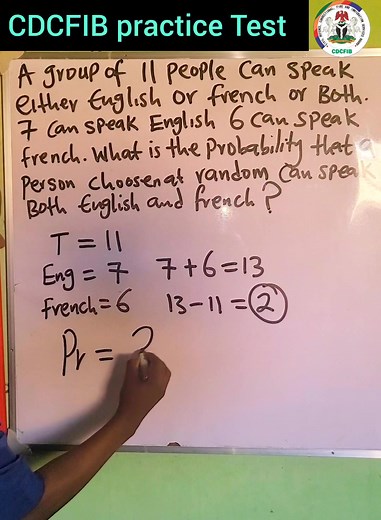 CDCFIB practice Test
CDCFIB
A group of 11 people can speak
either English or french or Both.
7 can speak English 6 can speak
french. What is the probability that a
person choosen at random can speak
Both English and french?
T = 11
Eng = 7 7+6=13
french=6 13-11=2
Pr = 2